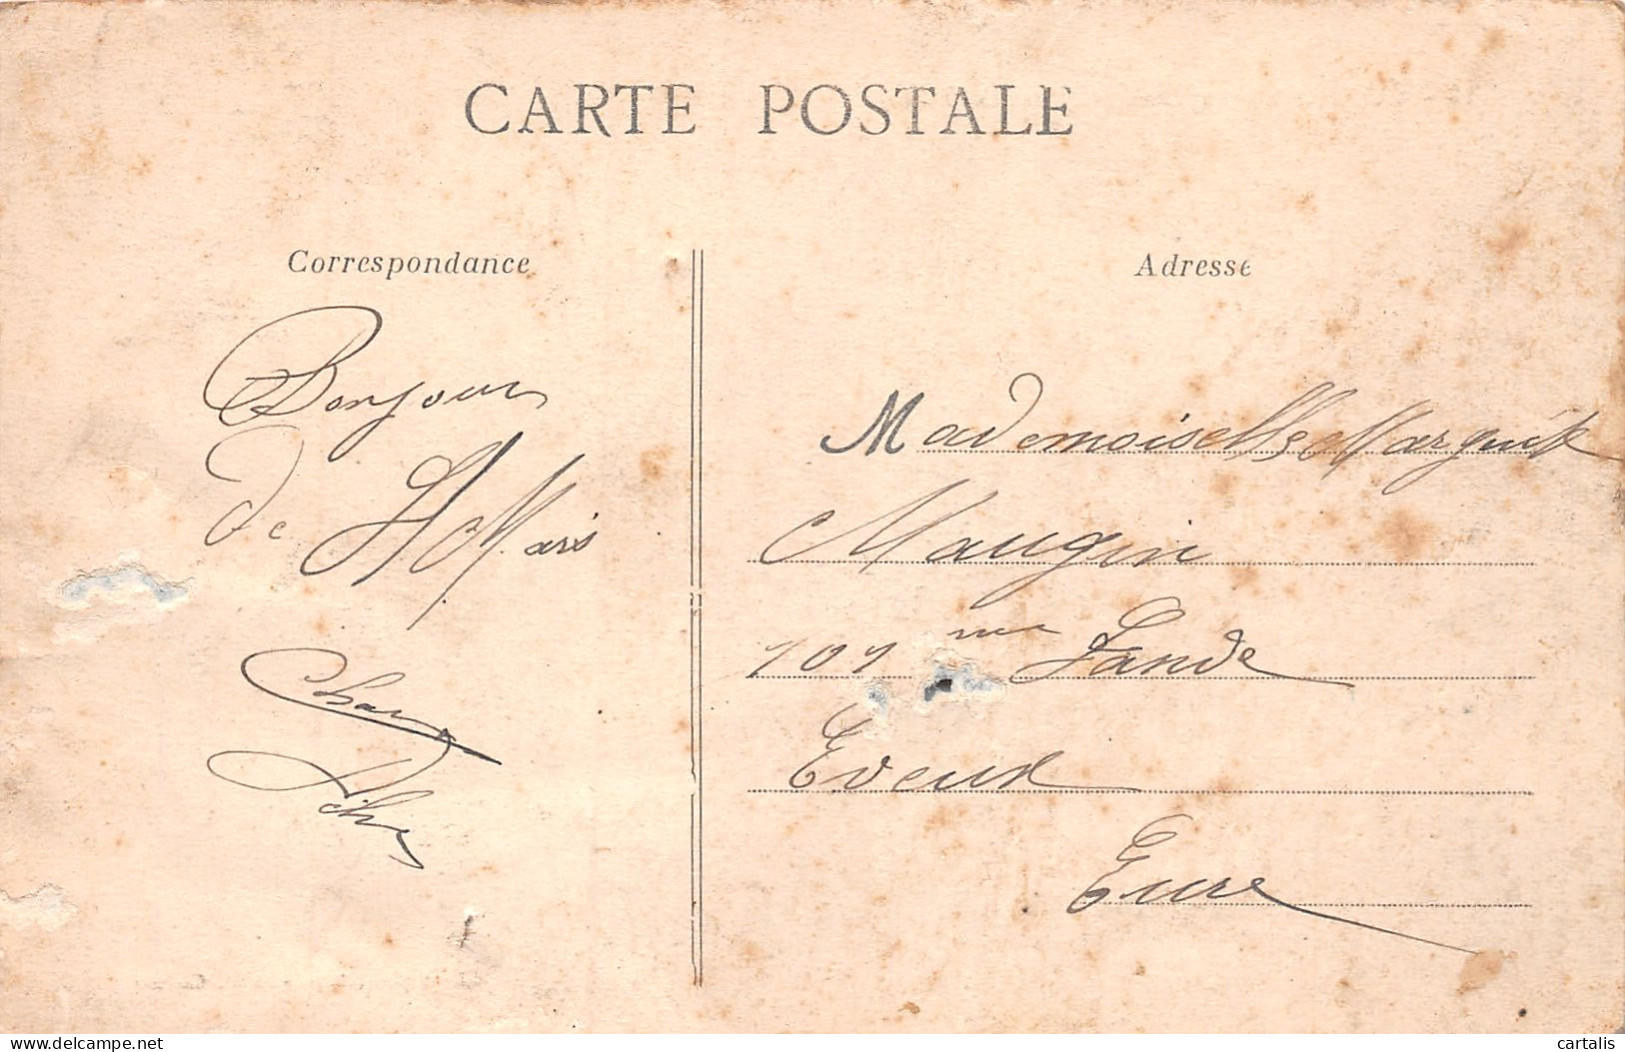 CARTE POSTALE
Correspondance
Bonjour
de
Adresse
Mademoiselle Marguite
Maugin
101 Lande
Eveux
Eure
www.delcampe.net
cartalis